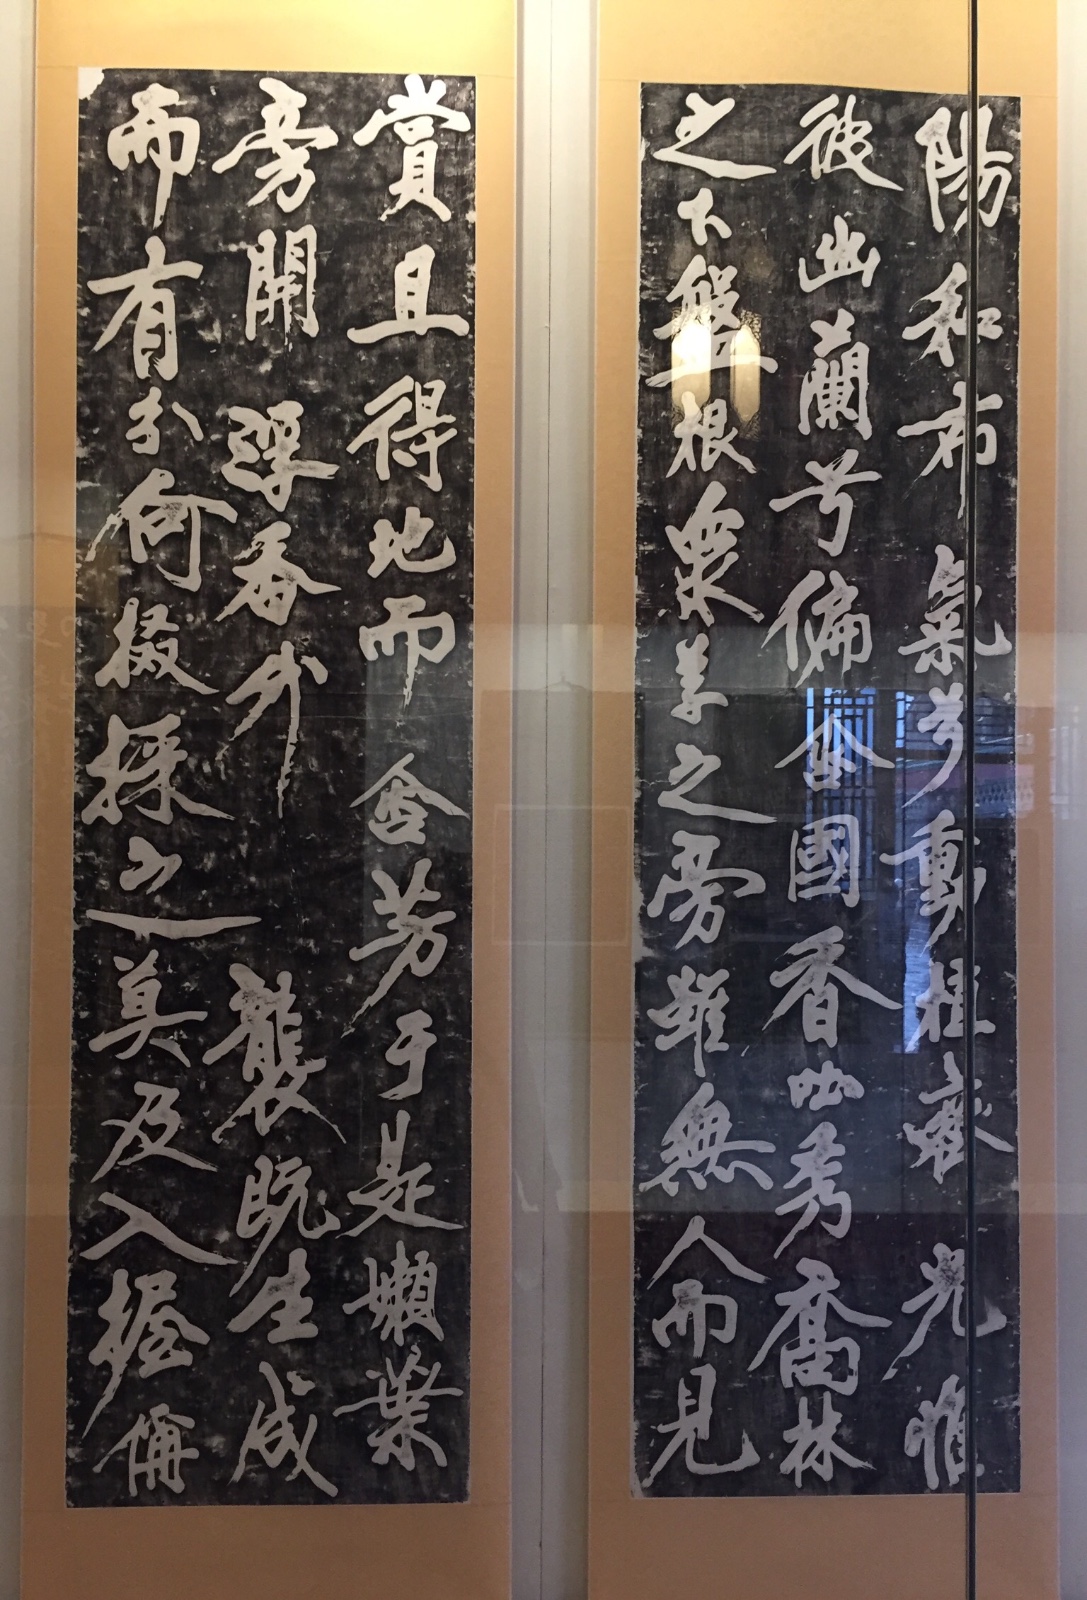 陽和布氣兮動植齊光惟
彼幽蘭兮偏含國香吐秀喬林
之下盤根衆草之旁雖無人而見
賞且得地而含芳于是嬾葉
旁開浮香外襲既生成
而有分何掇採之莫及入握偁